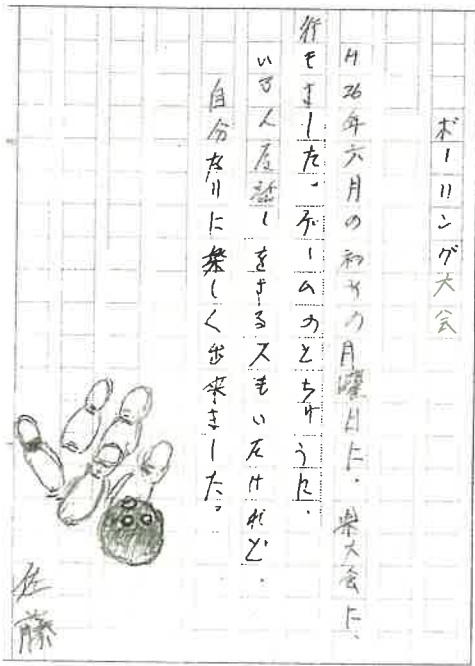 ボーリング大会
H26年六月の初めの月曜日に、県大会に、
行きました。ゲームのとちゅうに、
いろんな話しをする人もいたけれど、
自分なりに楽しく出来ました。
佐藤